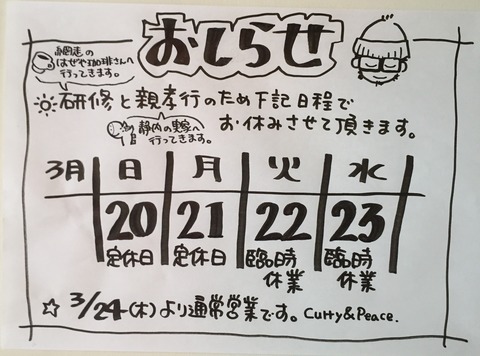 おしらせ
はぜや珈琲さんへ
行ってきます。
研修と親孝行のため下記日程で
お休みさせて頂きます。
静内の実家へ
行ってきます。
3月 日 月 火 水
20 21 22 23
定休日 定休日 臨時休業 臨時休業
☆ 3/24(木)より通常営業です。 Curry&Peace.